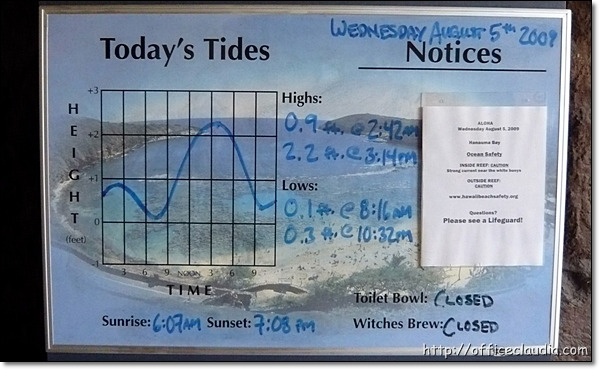 WEDNESDAY AUGUST 5TH 2009
Today's Tides
Notices
HEIGHT
(feet)
+3
+2
+1
0
-1
3 6 9 NOON 3 6 9
TIME
Highs:
0.9 ft. @ 2:42AM
2.2 ft. @ 3:14PM
Lows:
0.1 ft. @ 8:16AM
0.3 ft. @ 10:32PM
ALOHA
Wednesday August 5, 2009
Hanauma Bay
Ocean Safety
INSIDE REEF: CAUTION
Strong current near the white buoys
OUTSIDE REEF:
CAUTION
www.hawaiibeachsafety.org
Questions?
Please see a Lifeguard!
Toilet Bowl: CLOSED
Witches Brew: CLOSED
Sunrise: 6:07AM Sunset: 7:08 PM
http://officeclaudia.com/